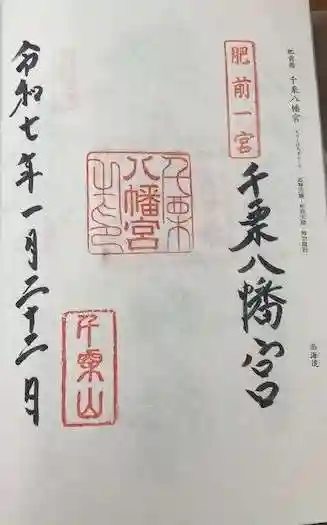 肥前國 千栗八幡宮
西海道
肥前一宮
千栗八幡宮
八幡宮
千栗山
令和七年一月二十二日